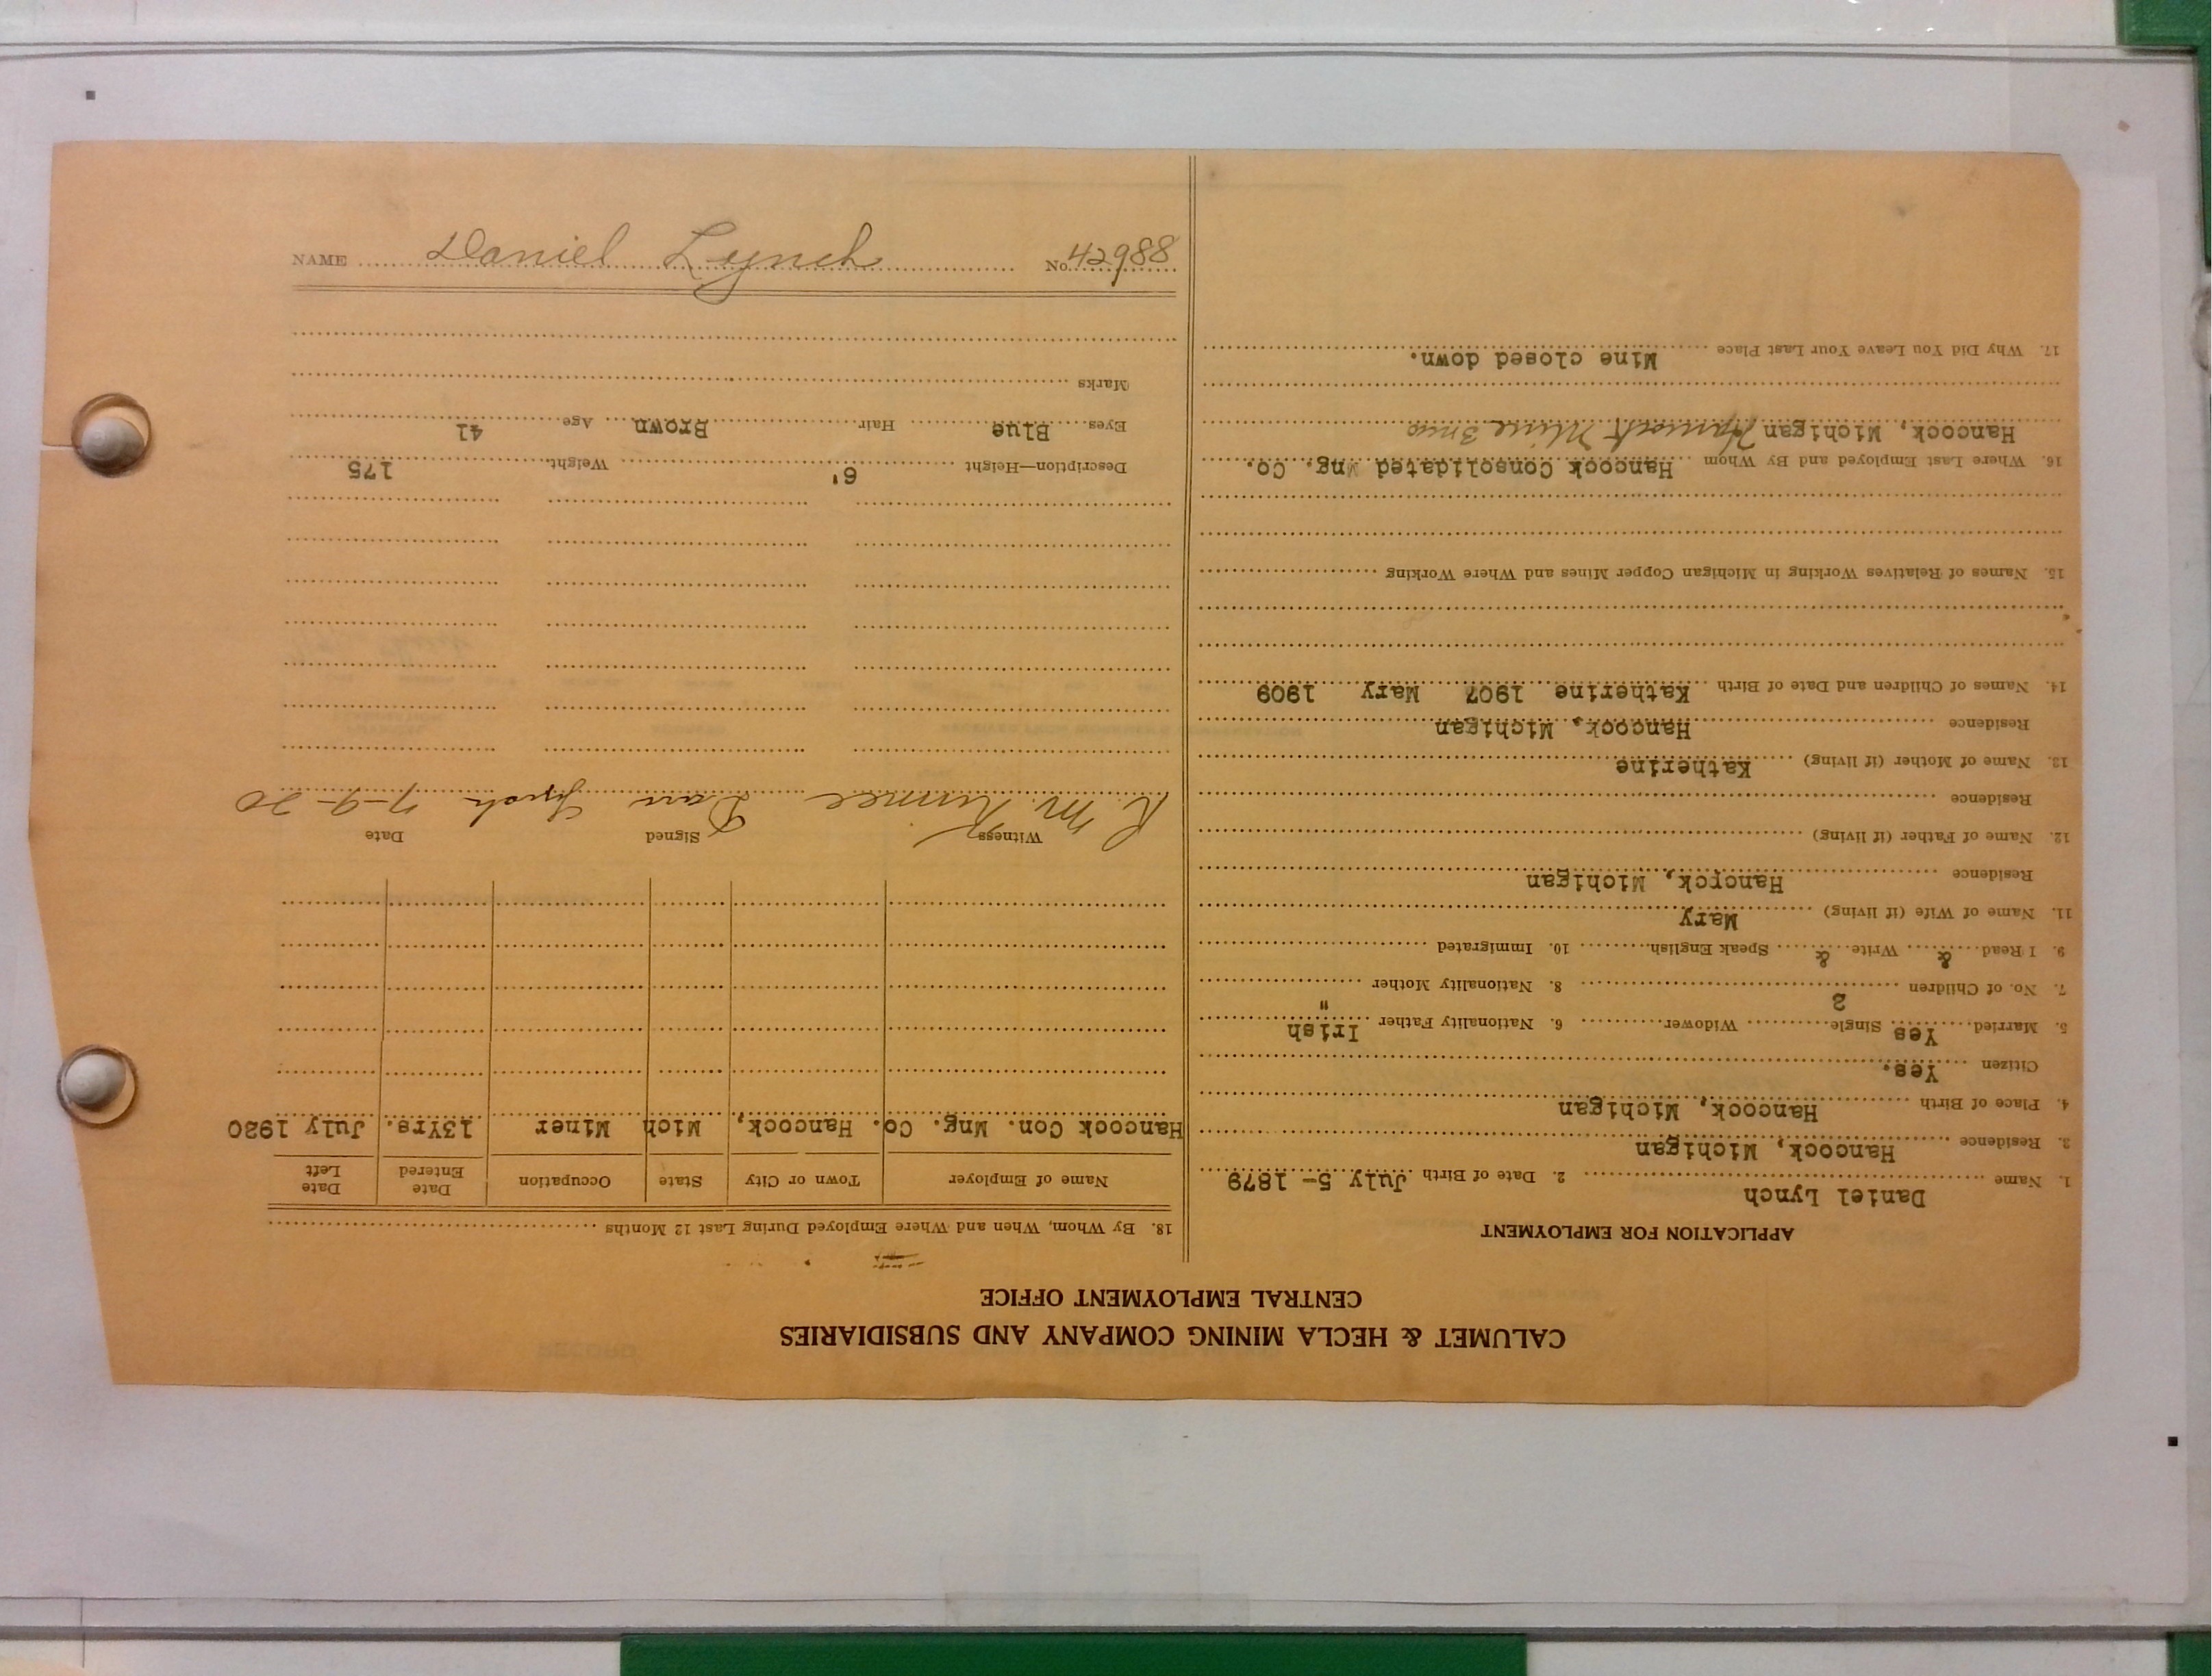 CALUMET & HECLA MINING COMPANY AND SUBSIDIARIES
CENTRAL EMPLOYMENT OFFICE
APPLICATION FOR EMPLOYMENT
1. Name Daniel Lynch 2. Date of Birth July 5- 1879
3. Residence Hancock, Michigan
4. Place of Birth Hancock, Michigan
Citizen Yes.
5. Married Yes Single Widower 6. Nationality Father Irish
7. No. of Children 2 8. Nationality Mother "
9. I Read & Write & Speak English 10. Immigrated
11. Name of Wife (if living) Mary
Residence Hancock, Michigan
12. Name of Father (if living)
Residence
13. Name of Mother (if living) Katherine
Residence Hancock, Michigan
14. Names of Children and Date of Birth Katherine 1907 Mary 1909
15. Names of Relatives Working in Michigan Copper Mines and Where Working
16. Where Last Employed and By Whom Hancock Consolidated Mng. Co.
Hancock, Michigan Hancock Mine 3 mos
17. Why Did You Leave Your Last Place Mine closed down.
18. By Whom, When and Where Employed During Last 12 Months
Name of Employer Town or City State Occupation Date Entered Date Left
Hancock Con. Mng. Co. Hancock, Mich Miner 13Yrs. July 1920
Witness Signed Date
R. M. Dan Lynch 7-9-20
Description—Height 6' Weight 175
Eyes Blue Hair Brown Age 41
Marks
NAME Daniel Lynch No. 42988